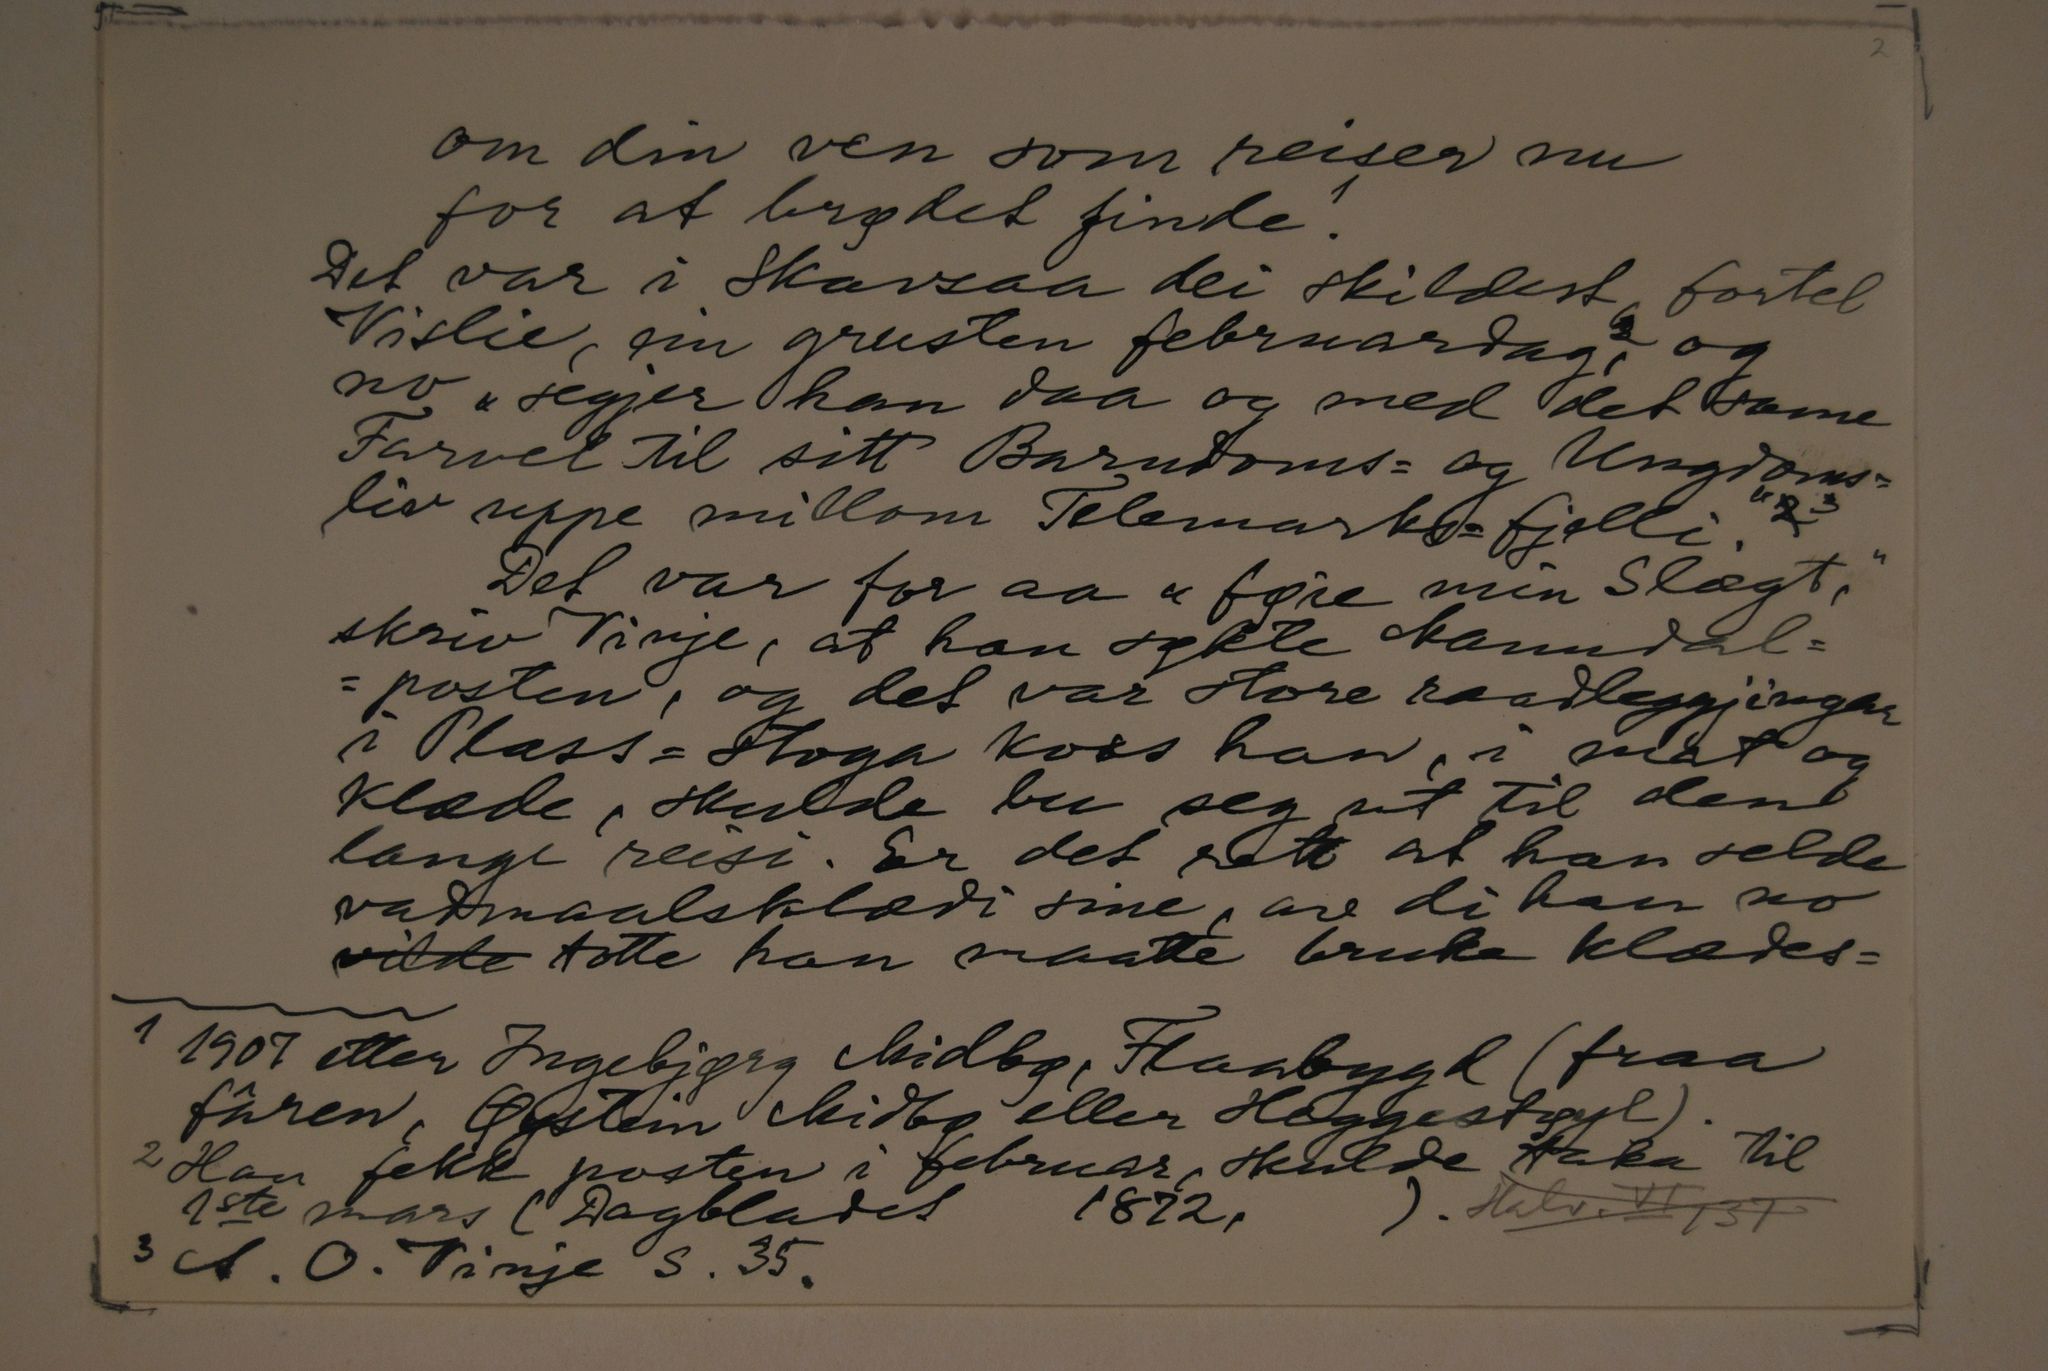 2
om din ven som reiser nu
for at brødet finde!¹
Det var i Skavsaa dei skildest, fortel
Vislie, ein grusten februardag,² og
no „segjer han daa og med det same
Farvel til sitt Barndoms= og Ungdoms=
liv uppe millom Telemarks=fjelli."³
Det var for aa „føie min Slægt,"
skriv Vinje, at han søkte Manndal=
=posten, og det var store raadleggjingar
i Plass=stoga koss han, i mat og
klæde, skulde bu seg ut til den
lange reisi. Er det rett at han selde
vadmaalsklædi sine, av di han no
vilde totte han maatte bruke klædes=
1 1907 etter Ingebjørg Midbø, Flaabygd (fraa
fâren, Øystein Midbø eller Heggestøyl).
2 Han fekk posten i februar, skulde taka til
1ste mars (Dagbladet 1872, ). Halv. VI 137
3 A. O. Vinje S. 35.